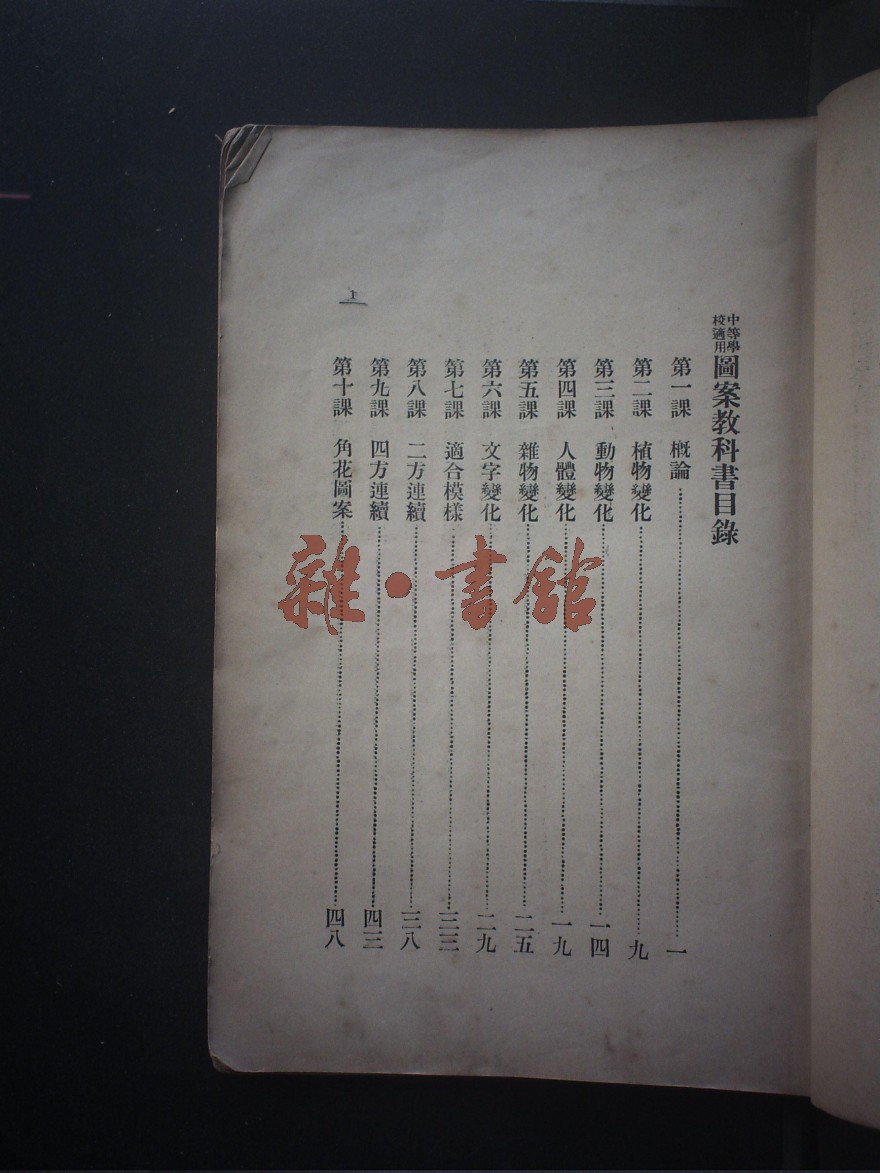 中等學校適用圖案教科書目錄
第一課 概論……一
第二課 植物變化……九
第三課 動物變化……一四
第四課 人體變化……一九
第五課 雜物變化……二五
第六課 文字變化……二九
第七課 適合模樣……三三
第八課 二方連續……三八
第九課 四方連續……四三
第十課 角花圖案……四八
1
雜·書館